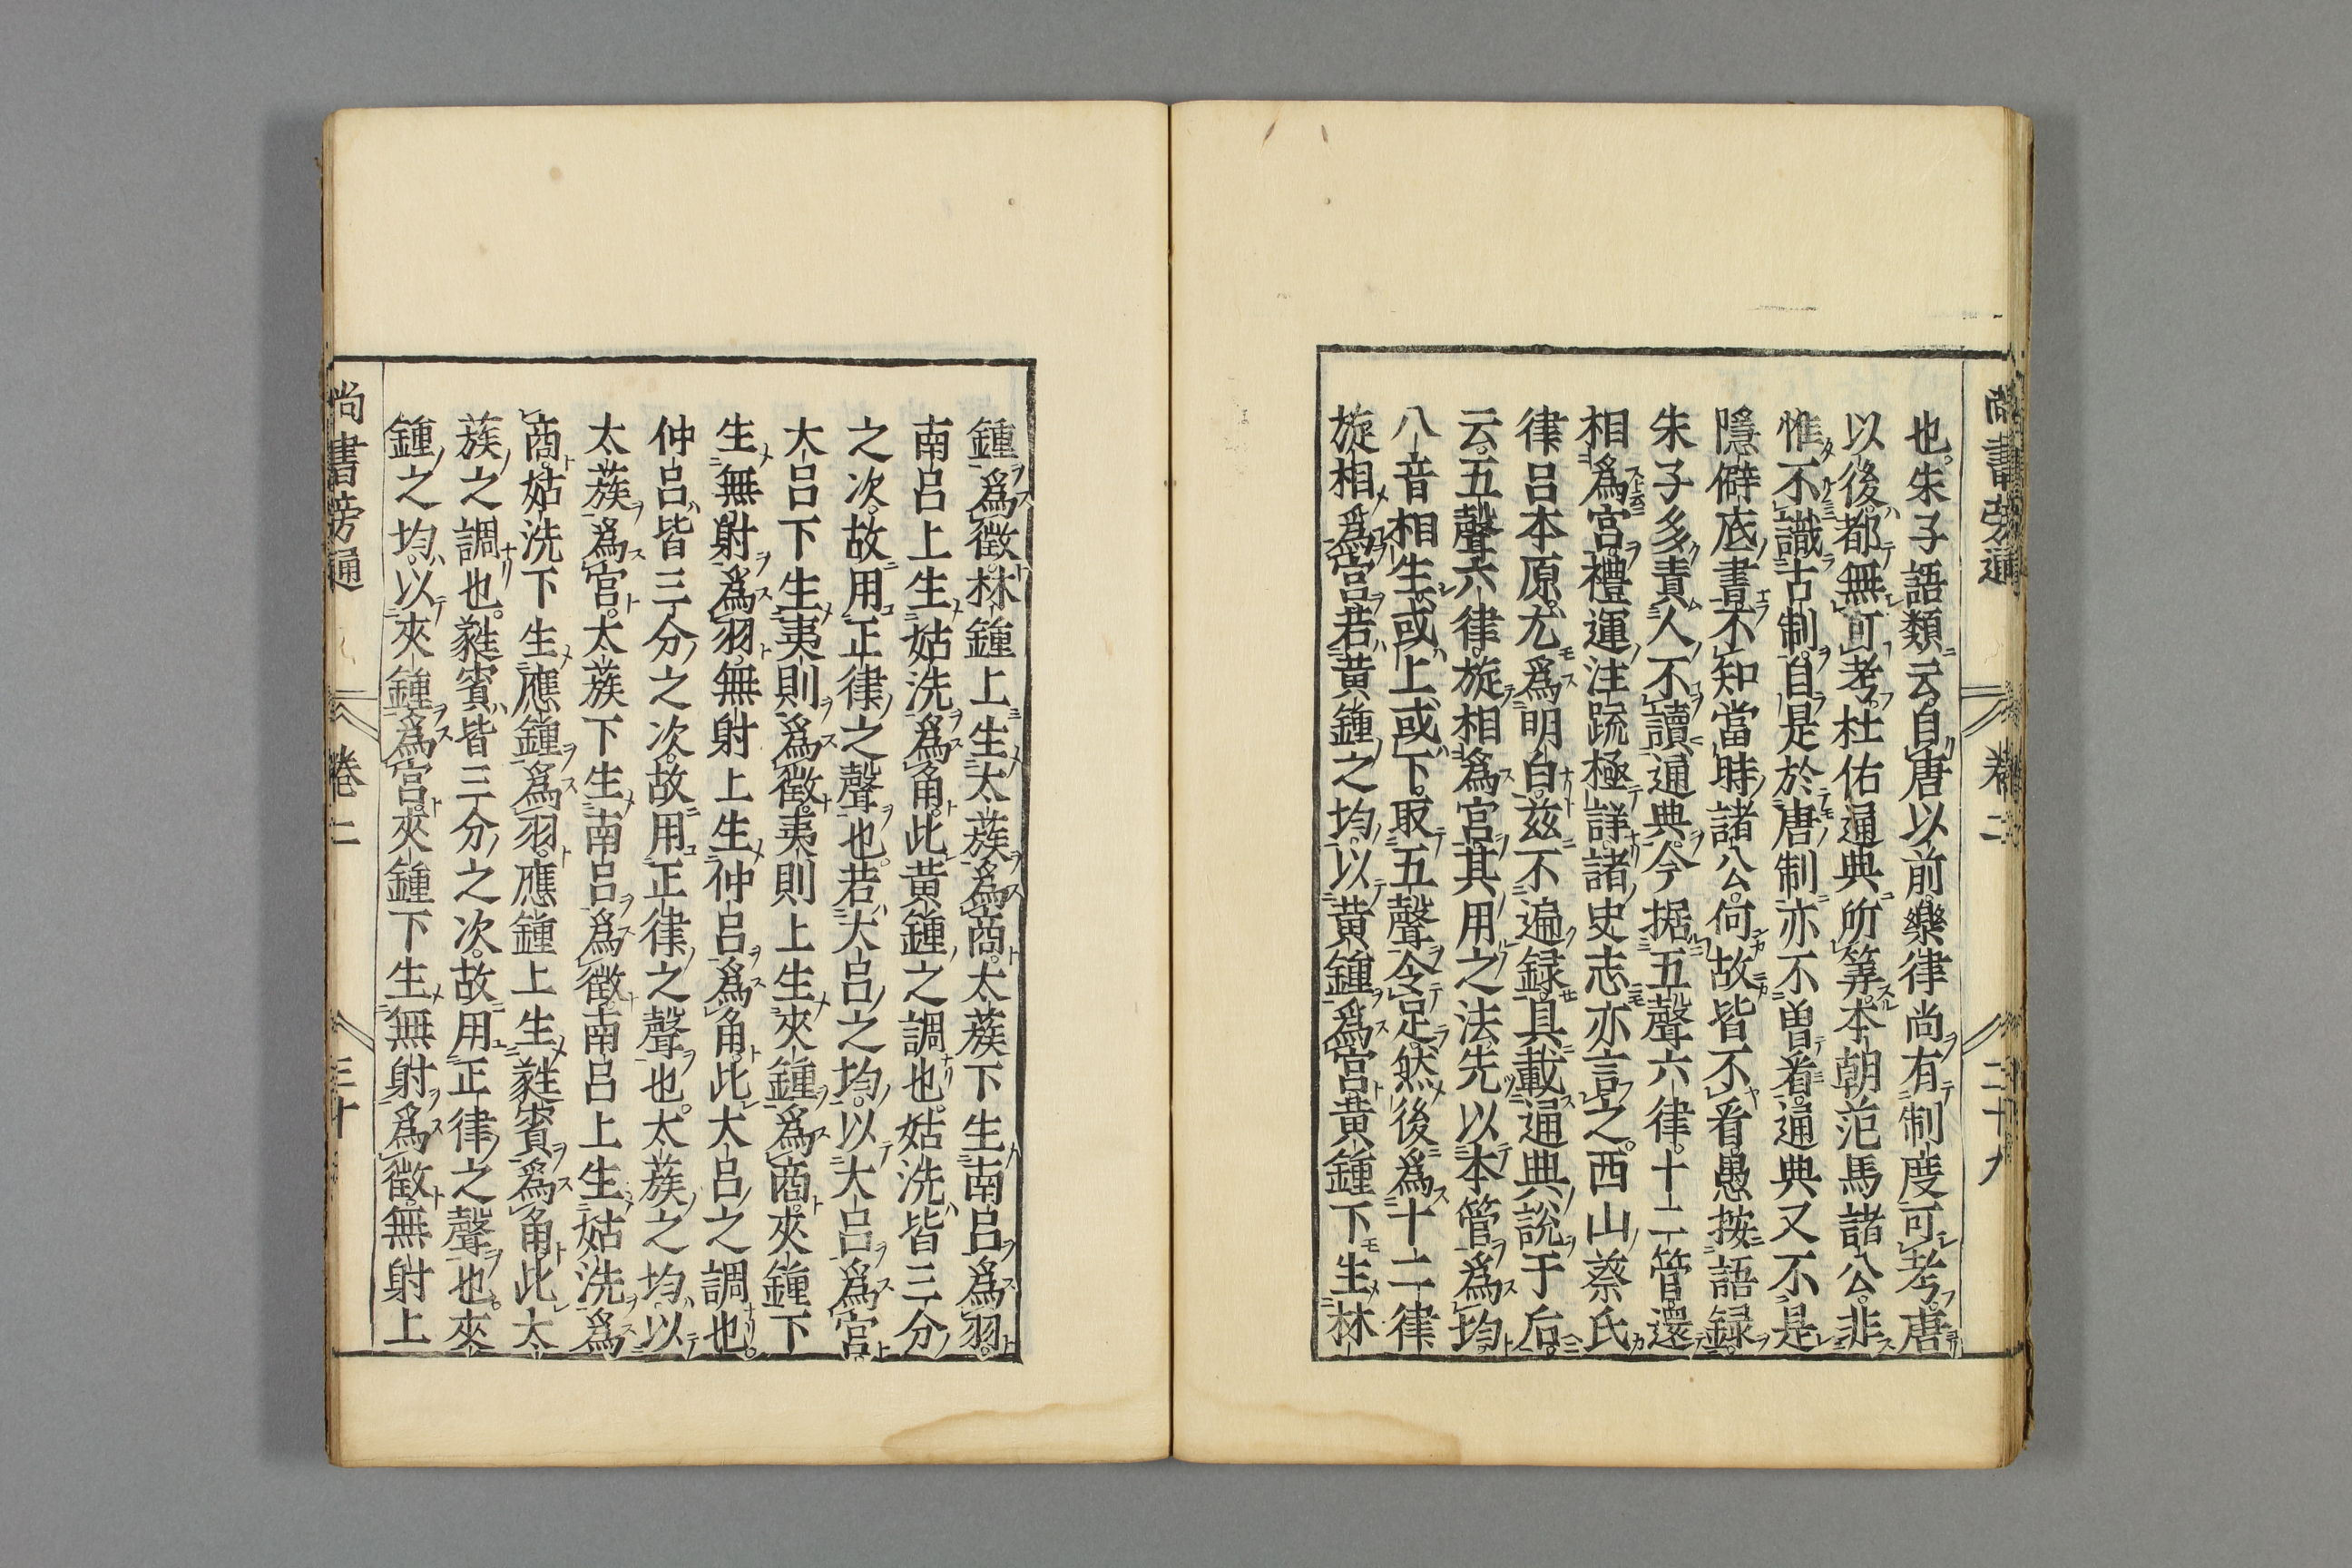 尚書旁通 卷二 二十九
也。朱子語類云。自唐以前。樂律尚有制度可考。唐
以後。都無可考。杜佑通典所筭。本朝范馬諸公。非
惟不識古制。自是於唐制亦不曾看。通典又不是
隱僻底書。不知當時諸公。何故皆不看。愚按語録。
朱子多責人不讀通典。今据五聲六律。十二管還
相爲宮。禮運注䟽極詳。諸史志亦言之。西山蔡氏
律呂本原。尤爲明白。玆不遍録。具載通典說于后。
云。五聲六律。旋相爲宮。其用之法。先以本管爲均。
八音相生。或上或下。取五聲令足。然後爲十二律
旋相爲宮。若黃鍾之均。以黃鍾爲宮。黃鍾下生林
鍾爲徵。林鍾上生太蔟爲商。太蔟下生南呂爲羽。
南呂上生姑洗爲角。此黃鍾之調也。姑洗皆三分
之次。故用正律之聲也。若大呂之均。以大呂爲宮。
大呂下生夷則爲徵。夷則上生夾鍾爲商。夾鍾下
生無射爲羽。無射上生仲呂爲角。此大呂之調也。
仲呂皆三分之次。故用正律之聲也。太蔟之均。以
太蔟爲宮。太蔟下生南呂爲徵。南呂上生姑洗爲
商。姑洗下生應鍾爲羽。應鍾上生蕤賓爲角。此太
蔟之調也。蕤賓皆三分之次。故用正律之聲也。夾
鍾之均。以夾鍾爲宮。夾鍾下生無射爲徵。無射上
尚書旁通 卷二 三十